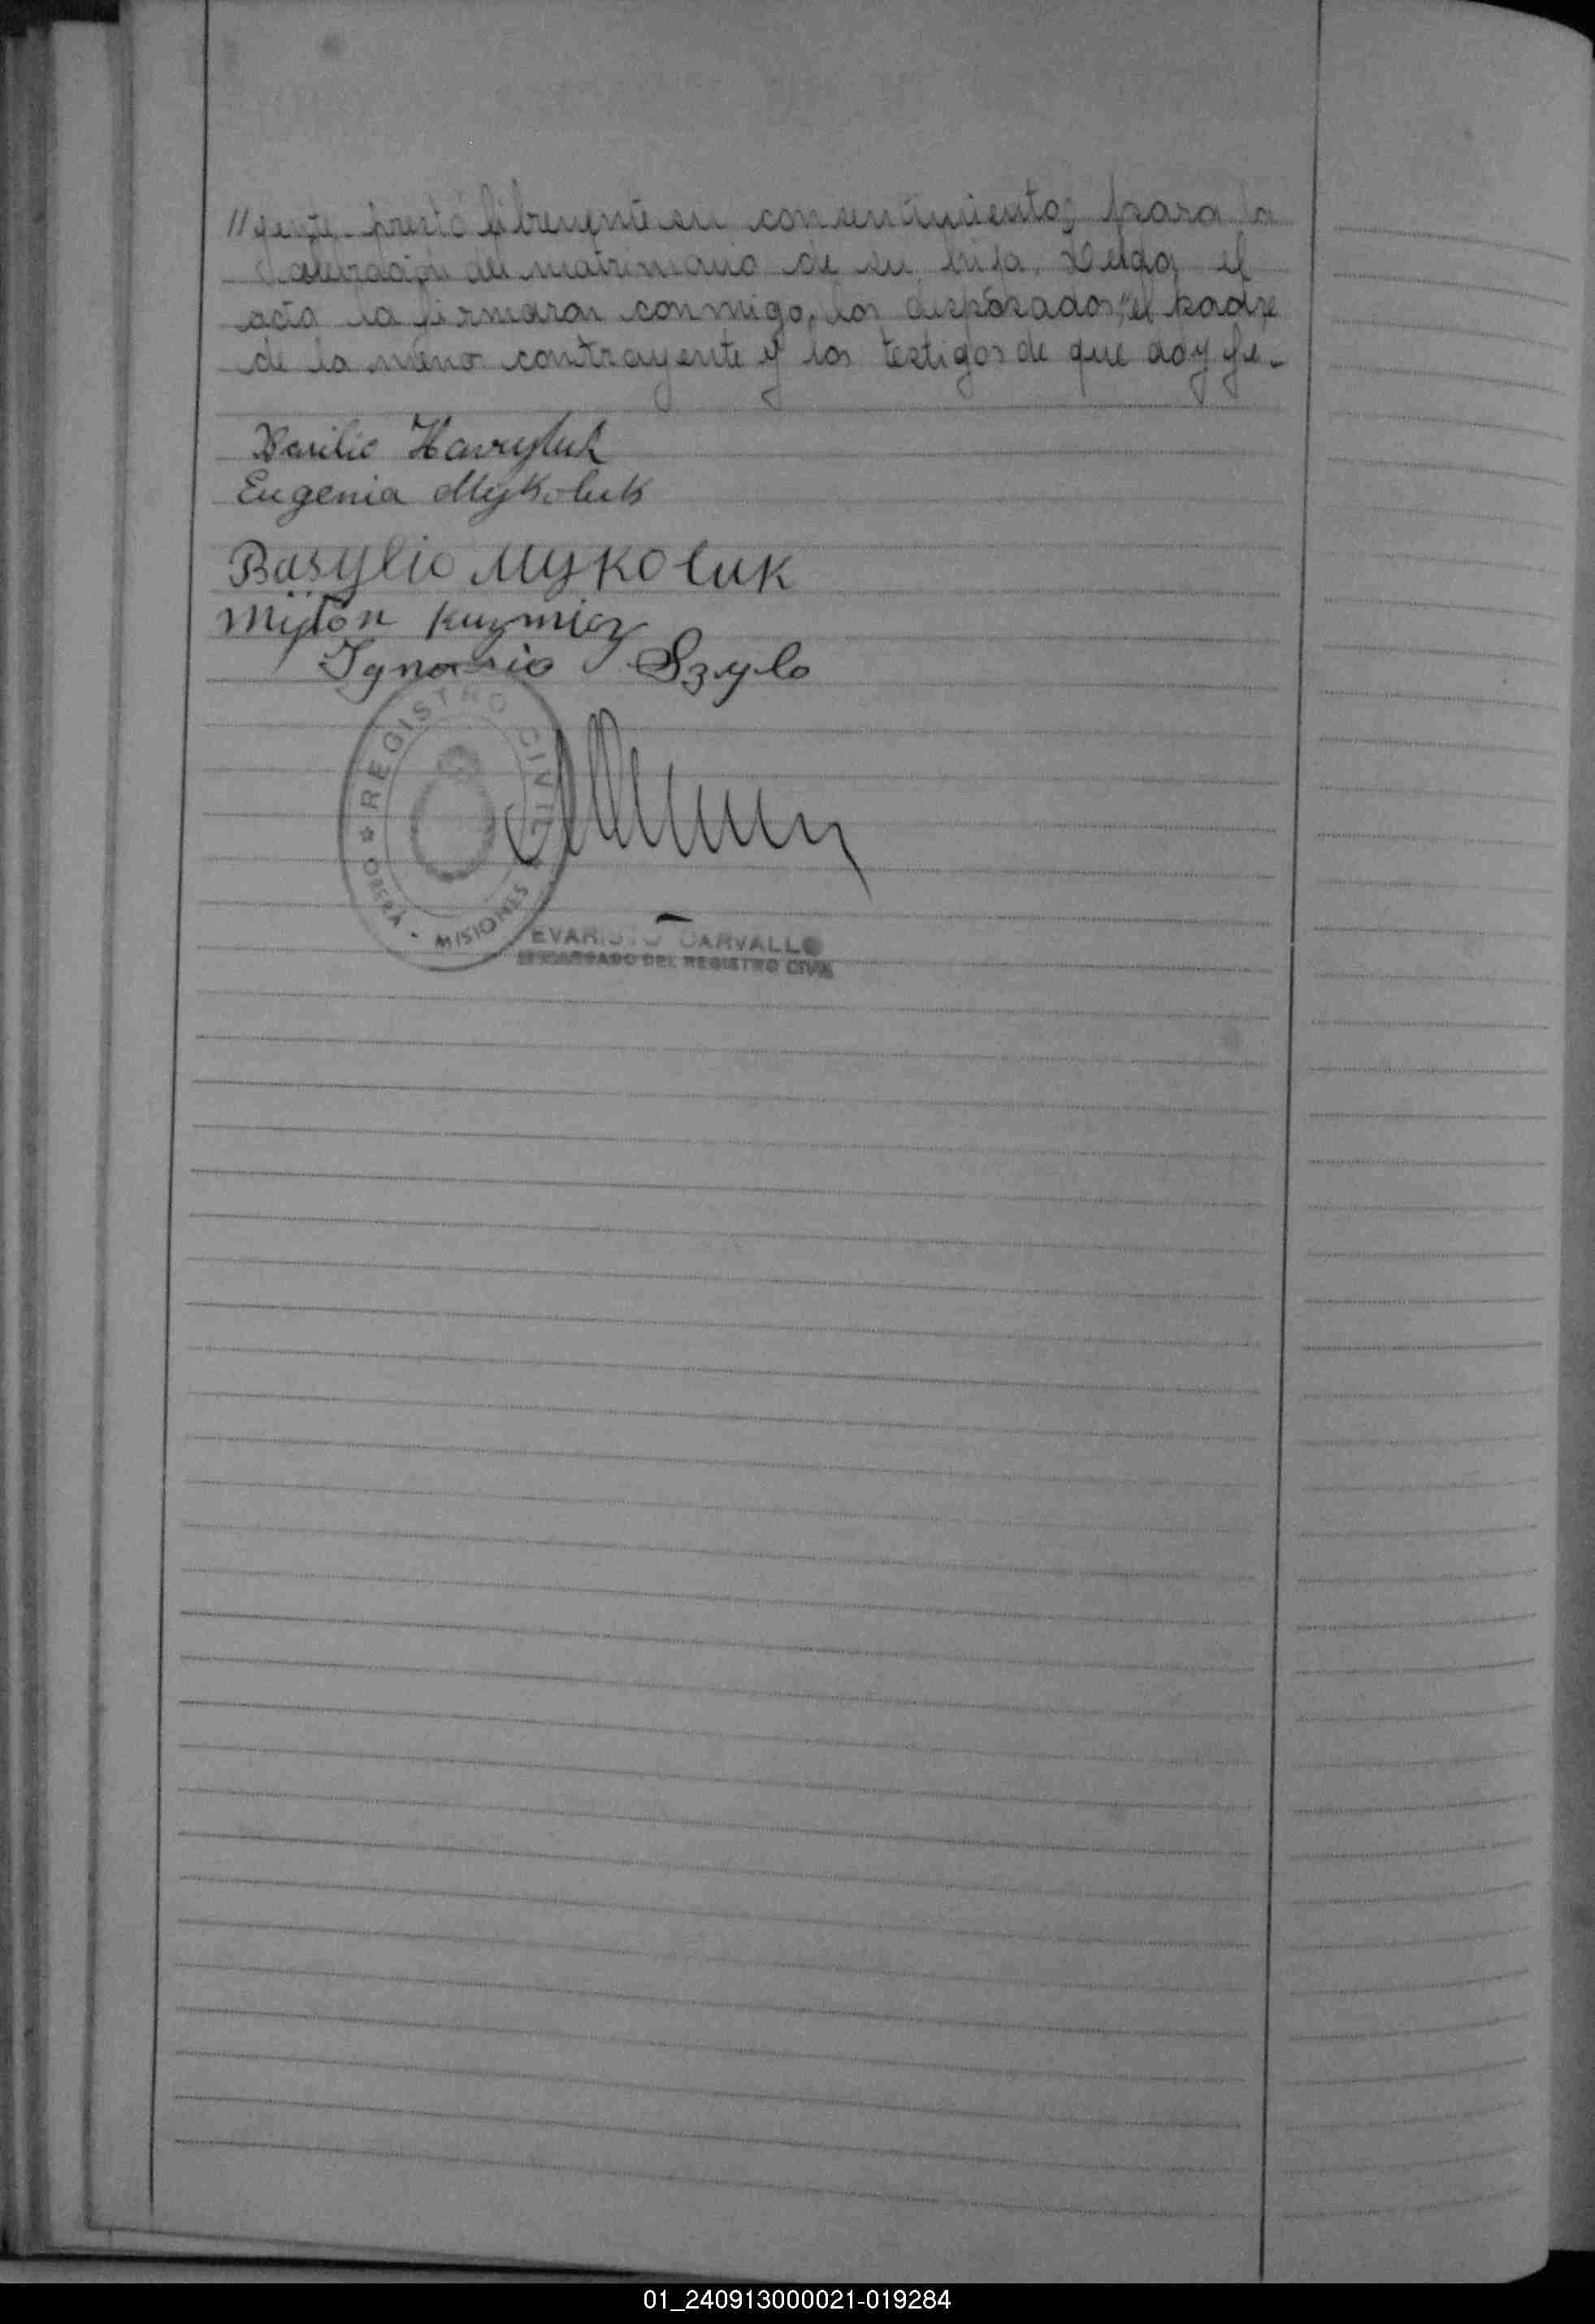 "gente prestó libremente su consentimiento, para la
celebración del matrimonio de su hija. Leída el
acta la firmaron conmigo, los desposados, el padre
de la menor contrayente y los testigos de que doy fe.-
Basilio Hawryluk
Eugenia Mykoluk
Basylio Mykoluk
Myton Kuzmicz
Ignasio Szylo
REGISTRO CIVIL
OBERA - MISIONES
EVARISTO CARVALLO
ENCARGADO DEL REGISTRO CIVIL
01_240913000021-019284